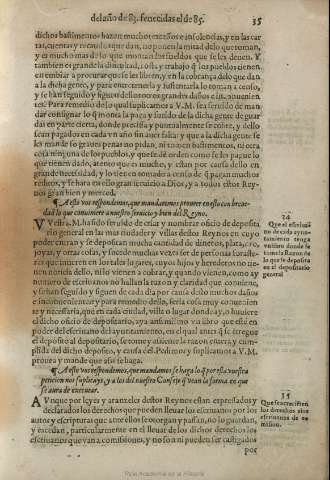 del año de 83. fenecidas el de 85. 35
dichos bastimentos hazen muchos excessos e insolencias, y en las car
tas, cuentas y recaudos que dan, no ponen la mitad de lo que toman,
y es mucho mas de lo que montan los sueldos que se les deuen. Y
tambien es grande la dificultad, costa y trabajo q̃ los pueblos tienen
en embiar a procurar que se les libren, y en la cobrança de lo que dan
a la dicha gente, y para entretenerla y sustentarla lo toman a censo,
y se han seguido y siguen destos otros grandes daños e inconuenien
tes. Para remedio de lo qual suplicamos a V. M. sea seruido de man
dar consignar lo q̃ monta la paga y sueldo de la dicha gente de guar
das en parte cierta, donde precisa y puntualmente se cobre, y dello
sean pagados en cada vn año sin auer falta: y que a la dicha gente se
les mande so graues penas no pidan, ni tomen bastimentos, ni otra
cosa ninguna de los pueblos, y que se dé orden como se les pague lo
que tienen dado, atento que es mucho, y estan por causa dello en
grande necessidad, y lo tienen tomado a censo de quien pagan mu-
chos corridos, y se hara en ello gran seruicio a Dios, y a todos estos Rey-
nos gran bien y merced.
¶ A esto vos respondemos, que mandaremos proueer en esto con breue-
dad lo que conuiniere a nuestro seruicio y bien del Reyno.
VUestra M. ha sido seruido de criar y nombrar oficio de deposita
rio general en las mas ciudades y villas destos Reynos en cuyo
poder entran y se depositan mucha cantidad de dineros, plata, oro,
joyas, y otras cosas, y sucede muchas vezes ser de personas foraste-
ras que mueren en los tales lugares, cuyos hijos y herederos no tie-
nen noticia dello, ni lo vienen a cobrar, y quando vienen, como ay
numero de escriuanos no hallan la razon y claridad que conuiene,
y se han seguido y siguen de cada dia por causa desto muchos daños
e inconuenientes: y para remedio dello, seria cosa muy conuenien-
te y necessaria, que en cada ciudad, villa o lugar donde ay, o huuiere
el dicho oficio de depositario, aya assimismo vn libro que esté en
poder del escriuano del ayuntamiento, en el qual antes q̃ se entregue
el deposito al depositario, se tome y assiente la razon entera y cum-
plida del dicho deposito, y causa del. Pedimos y suplicamos a V. M.
prouea y mande que assi se haga.
¶ A esto vos respondemos, que mandamos se haga lo q̃ por esta vuestra
peticion nos suplicays, y a los del nuestro Consejo q̃ vean la forma en que
se aura de executar.
AVnque por leyes y aranzeles destos Reynos estan expressados y
declarados los derechos que pueden lleuar los escriuanos por los
autos y escrituras que ante ellos se otorgan y passan, no lo guardan,
y exceden, particularmente en el lleuar de los dichos derechos los
escriuanos que van a comissiones, y no son ni pueden ser castigados
por
34
Que el escriua
no de cada ayun
tamiento tenga
vn libro donde se
tome la Razon de
lo que se deposita
en el depositario
general
35
Que se acrecienten
los derechos a los
escriuanos de co
mission.
Real Academia de la Historia